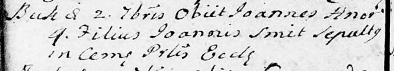 Busk d 2. 7bris Obiit Joannes Anor
4. Filius Joannis Smit Sepultq
in Cem̄ Prlis Eccls